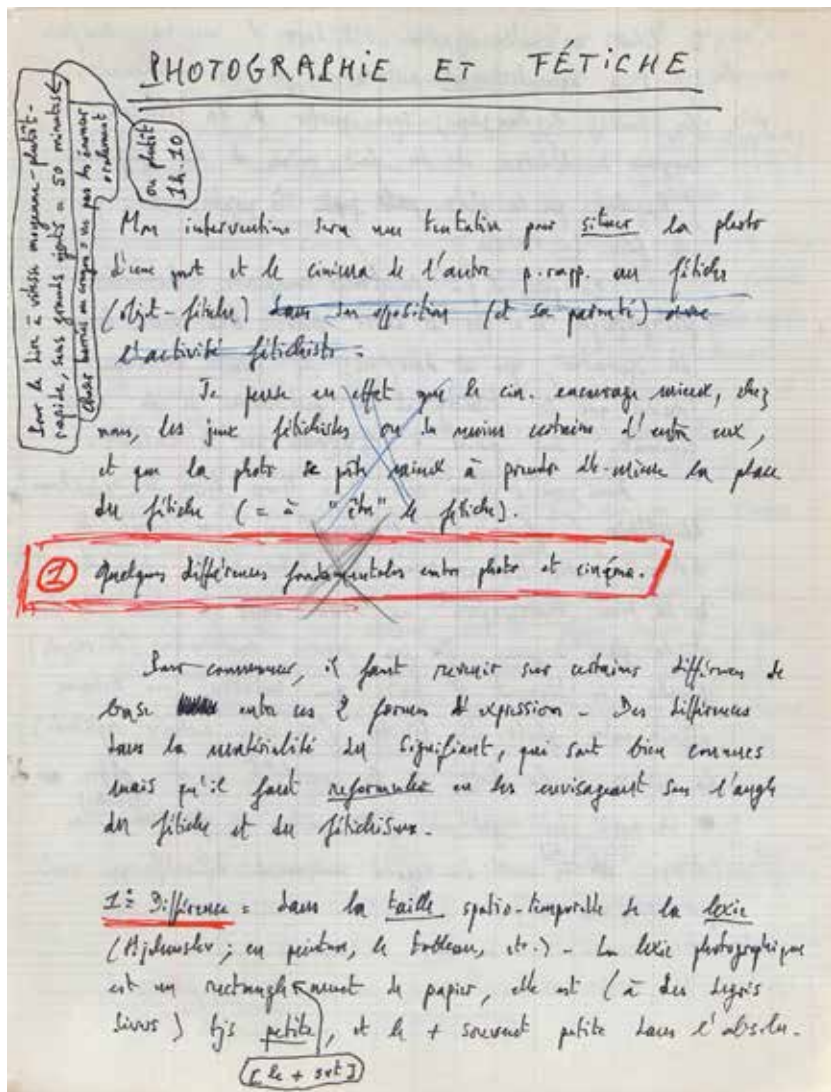 PHOTOGRAPHIE ET FÉTICHE
Pour le lire à vitesse moyenne-plutôt-
rapide, sans grands ajouts = 50 minutes
Choses barrées au crayon = ne pas les énoncer
oralement
ou plutôt
1h.10
Mon intervention sera une tentative pour situer la photo
d'une part et le cinéma de l'autre p.rapp. au fétiche
(objet-fétiche) dans son opposition (et sa parenté) avec
l'activité fétichiste.
Je pense en effet que le cin. encourage mieux, chez
nous, les jeux fétichistes ou du moins certains d'entre eux,
et que la photo se prête mieux à prendre elle-même la place
du fétiche (= à "être" le fétiche).
① Quelques différences fondamentales entre photo et cinéma.
Pour commencer, il faut revenir sur certaines différences de
base entre ces 2 formes d'expression - Des différences
dans la matérialité du signifiant, qui sont bien connues
mais qu'il faut reformuler en les envisageant sous l'angle
du fétiche et du fétichisme.
1° Différence = dans la taille spatio-temporelle de la lexie
(Hjelmslev ; en peinture, le tableau, etc.) - La lexie photographique
est un rectangle muet de papier, elle est (à des degrés
divers) tjs petite, et le + souvent petite dans l'absolu.
[le + svt]